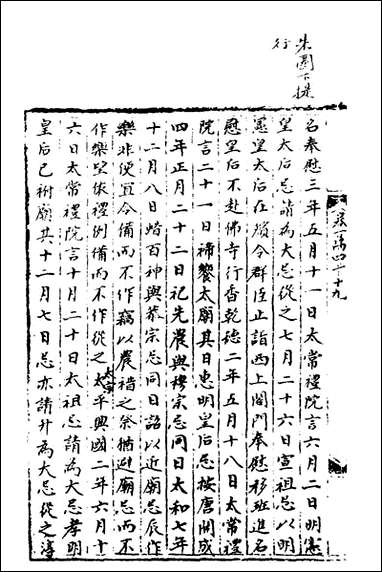 朱圈下提
行
名奉慰三年五月十一日太常禮院言六月二日明憲
皇太后忌請為大忌從之七月二十六日宣祖忌以明
憲皇太后在殯今群臣止詣西上閤門奉慰移班進名
慰皇后不赴佛寺行香乾德二年五月十八日太常禮
院言二十一日禘饗太廟其日惠明皇后忌按唐開成
四年正月二十二日祀先農與穆宗忌同日太和七年
十二月八日蜡百神與敬宗忌同日詔以近廟忌辰作
樂非便宜令備而不作竊以農禮之祭猶避廟忌而不
作樂望依禮例備而不作從之太平興國二年六月十
太宗
六日太常禮院言十月二十日太祖忌請為大忌孝明
皇后已祔廟其十二月七日忌亦請升為大忌從之淳
卷一萬四千十九